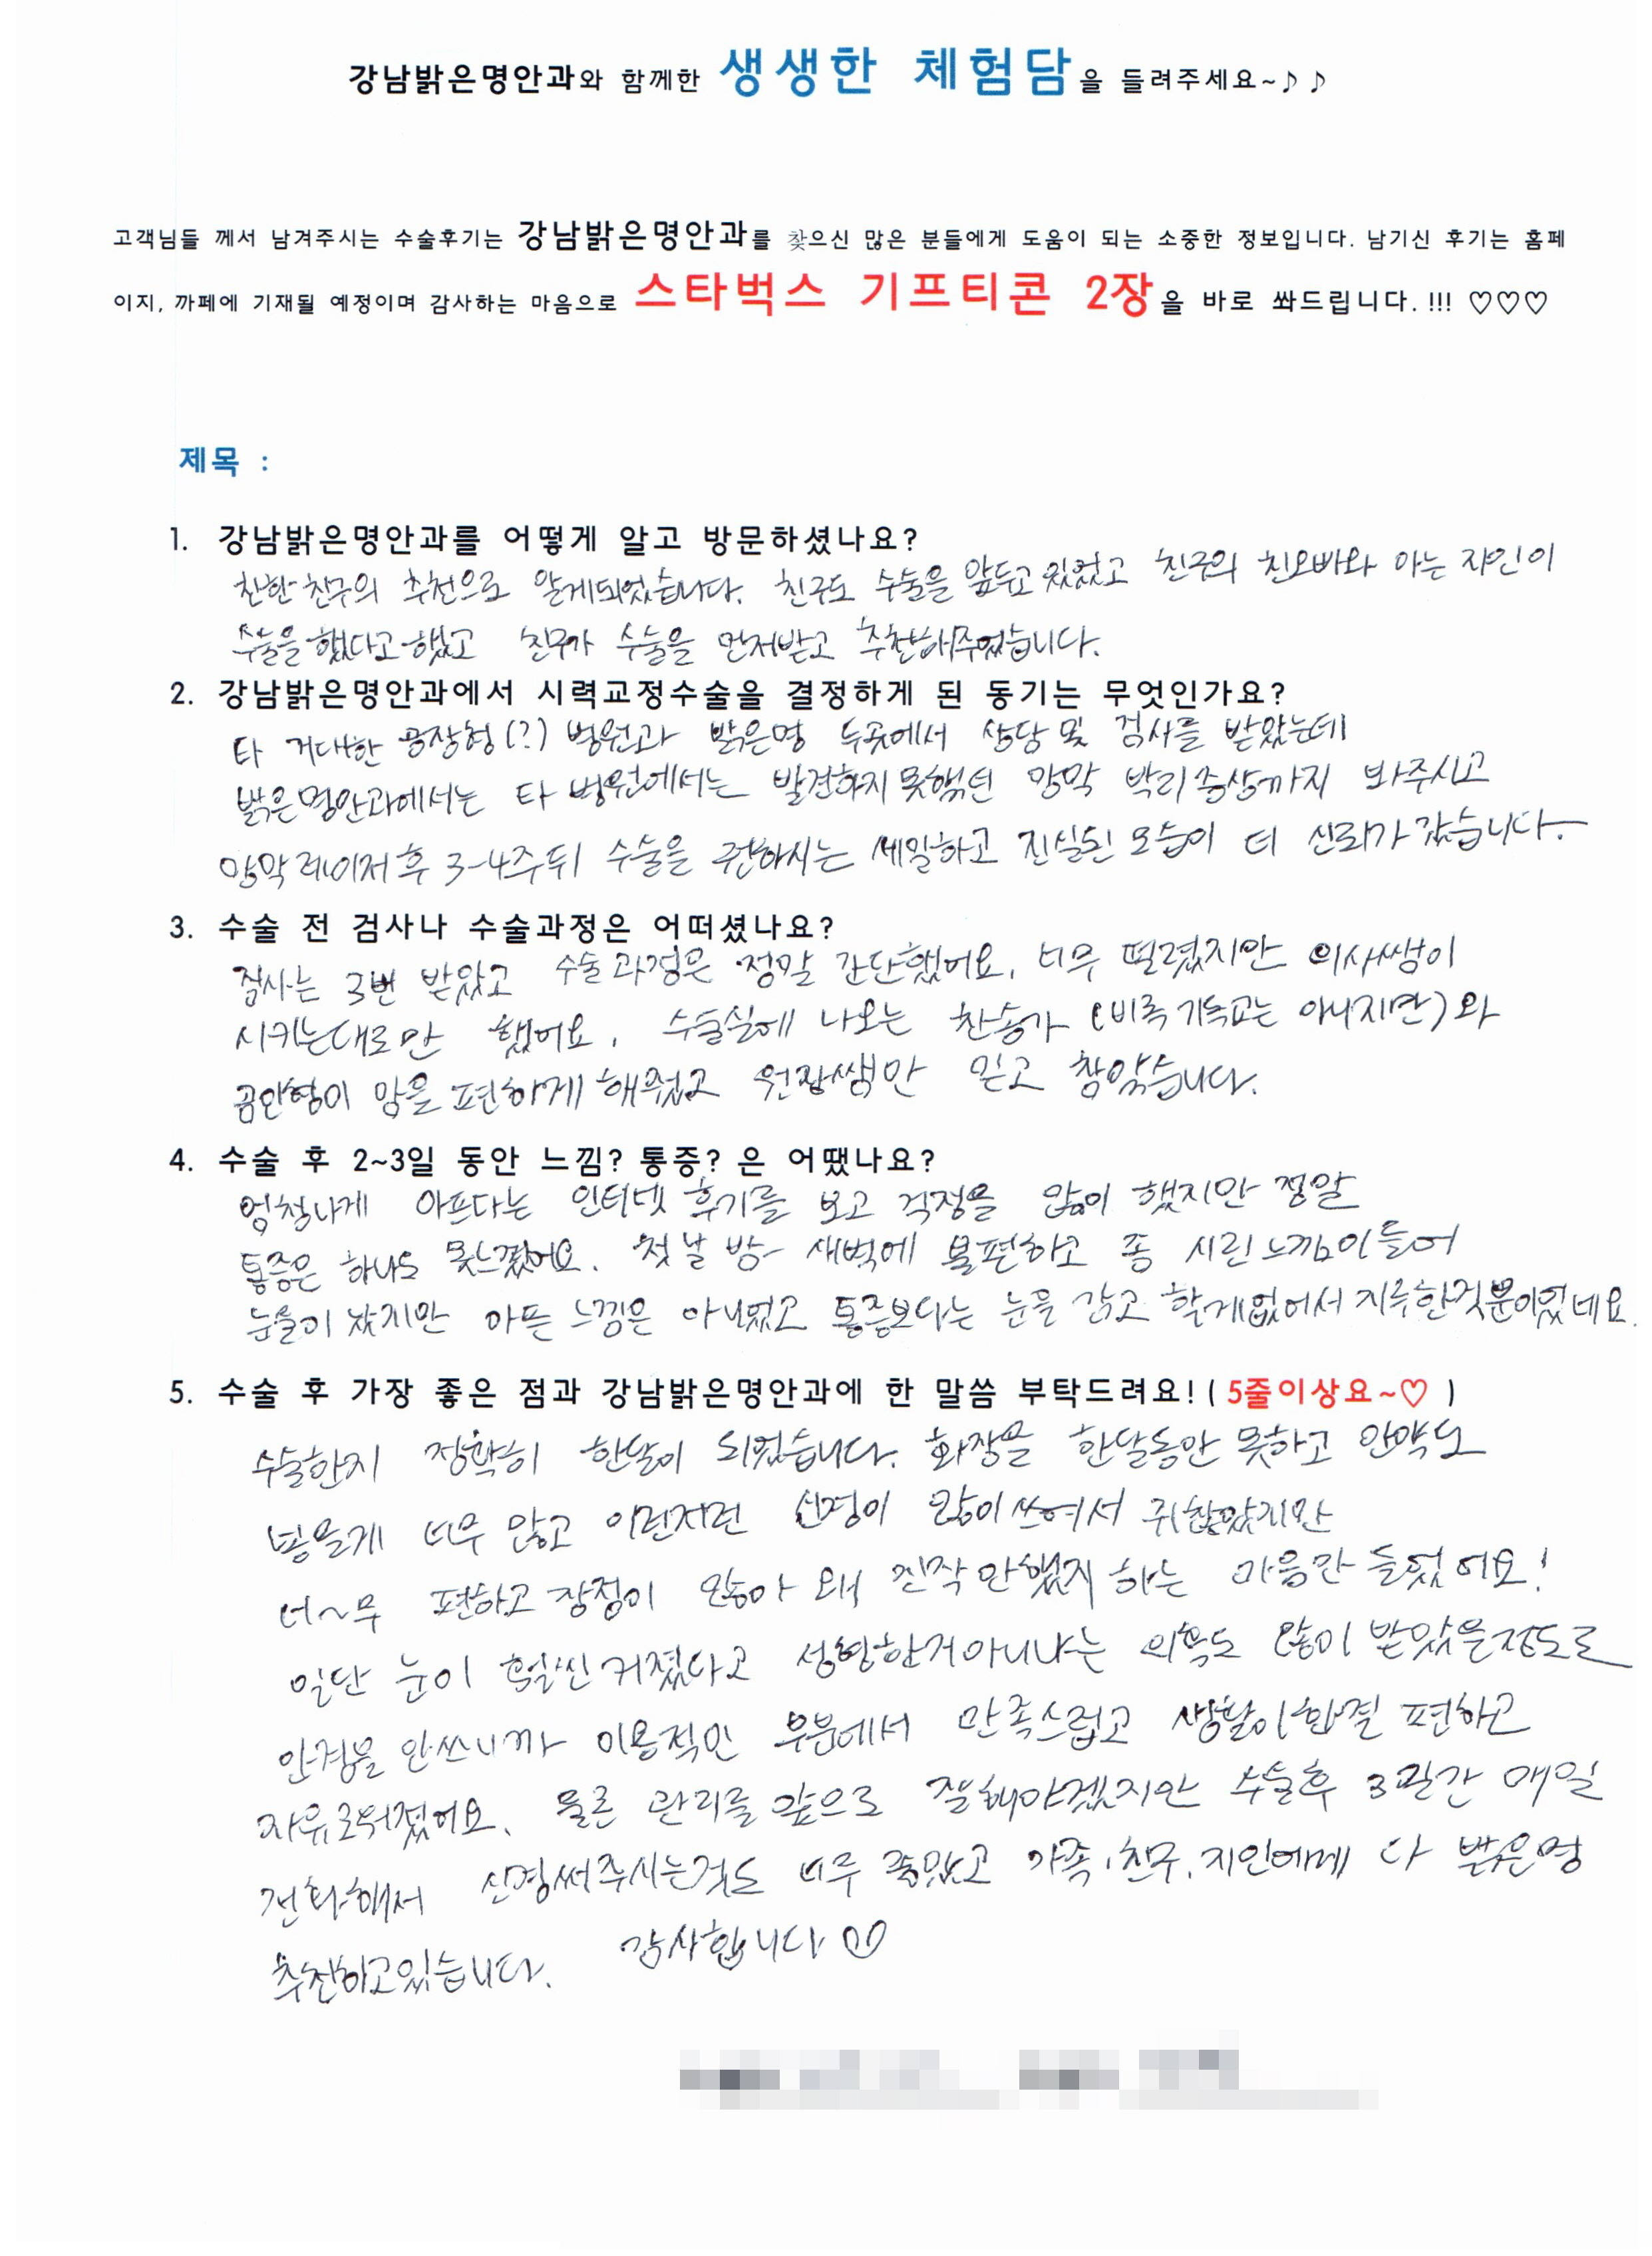 강남밝은명안과와 함께한 생생한 체험담을 들려주세요~♪ ♪
고객님들 께서 남겨주시는 수술후기는 강남밝은명안과를 찾으신 많은 분들에게 도움이 되는 소중한 정보입니다. 남기신 후기는 홈페
이지, 까페에 기재될 예정이며 감사하는 마음으로 스타벅스 기프티콘 2장을 바로 쏴드립니다. !!! ♡♡♡
제목 :
1. 강남밝은명안과를 어떻게 알고 방문하셨나요?
친한 친구의 추천으로 알게되었습니다. 친구도 수술을 앞두고 있었고 친구의 친오빠와 아는 지인이
수술을 했다고 했고 친구가 수술을 먼저받고 추천해주었습니다.
2. 강남밝은명안과에서 시력교정수술을 결정하게 된 동기는 무엇인가요?
타 거대한 공장형(?) 병원과 밝은명 두곳에서 상담 및 검사를 받았는데
밝은명안과에서는 타 병원에서는 발견하지 못했던 망막 박리 증상까지 봐주시고
망막 레이저 후 3-4주뒤 수술을 권하시는 세밀하고 진실된 모습이 더 신뢰가 갔습니다.
3. 수술 전 검사나 수술과정은 어떠셨나요?
검사는 3번 받았고 수술 과정은 정말 간단했어요. 너무 떨렸지만 의사쌤이
시키는대로만 했어요. 수술실에 나오는 찬송가 (비록 기독교는 아니지만)와
곰인형이 맘을 편하게 해줬고 원장쌤만 믿고 참았습니다.
4. 수술 후 2~3일 동안 느낌? 통증? 은 어땠나요?
엄청나게 아프다는 인터넷 후기를 보고 걱정을 많이 했지만 정말
통증은 하나도 못느꼈어요. 첫날 밤- 새벽에 불편하고 좀 시린 느낌이 들어
눈물이 났지만 아픈 느낌은 아니었고 통증보다는 눈을 감고 할게없어서 지루한것뿐이었네요.
5. 수술 후 가장 좋은 점과 강남밝은명안과에 한 말씀 부탁드려요! ( 5줄이상요~♡ )
수술한지 정확히 한달이 되었습니다. 화장을 한달동안 못하고 안약도
넣을게 너무 많고 이런저런 신경이 많이 쓰여서 귀찮았지만
너~무 편하고 장점이 많아 왜 진작 안했지 하는 마음만 들었어요!
일단 눈이 훨씬 커졌다고 성형한거아니냐는 의혹도 많이 받았을정도로
안경을 안쓰니까 미용적인 부분에서 만족스럽고 생활이 한결 편하고
자유로워졌어요. 물론 관리를 앞으로 잘해야겠지만 수술후 3일간 매일
전화해서 신경써주시는것도 너무 좋았고 가족, 친구, 지인에게 다 밝은명
추천하고있습니다. 감사합니다 ♡